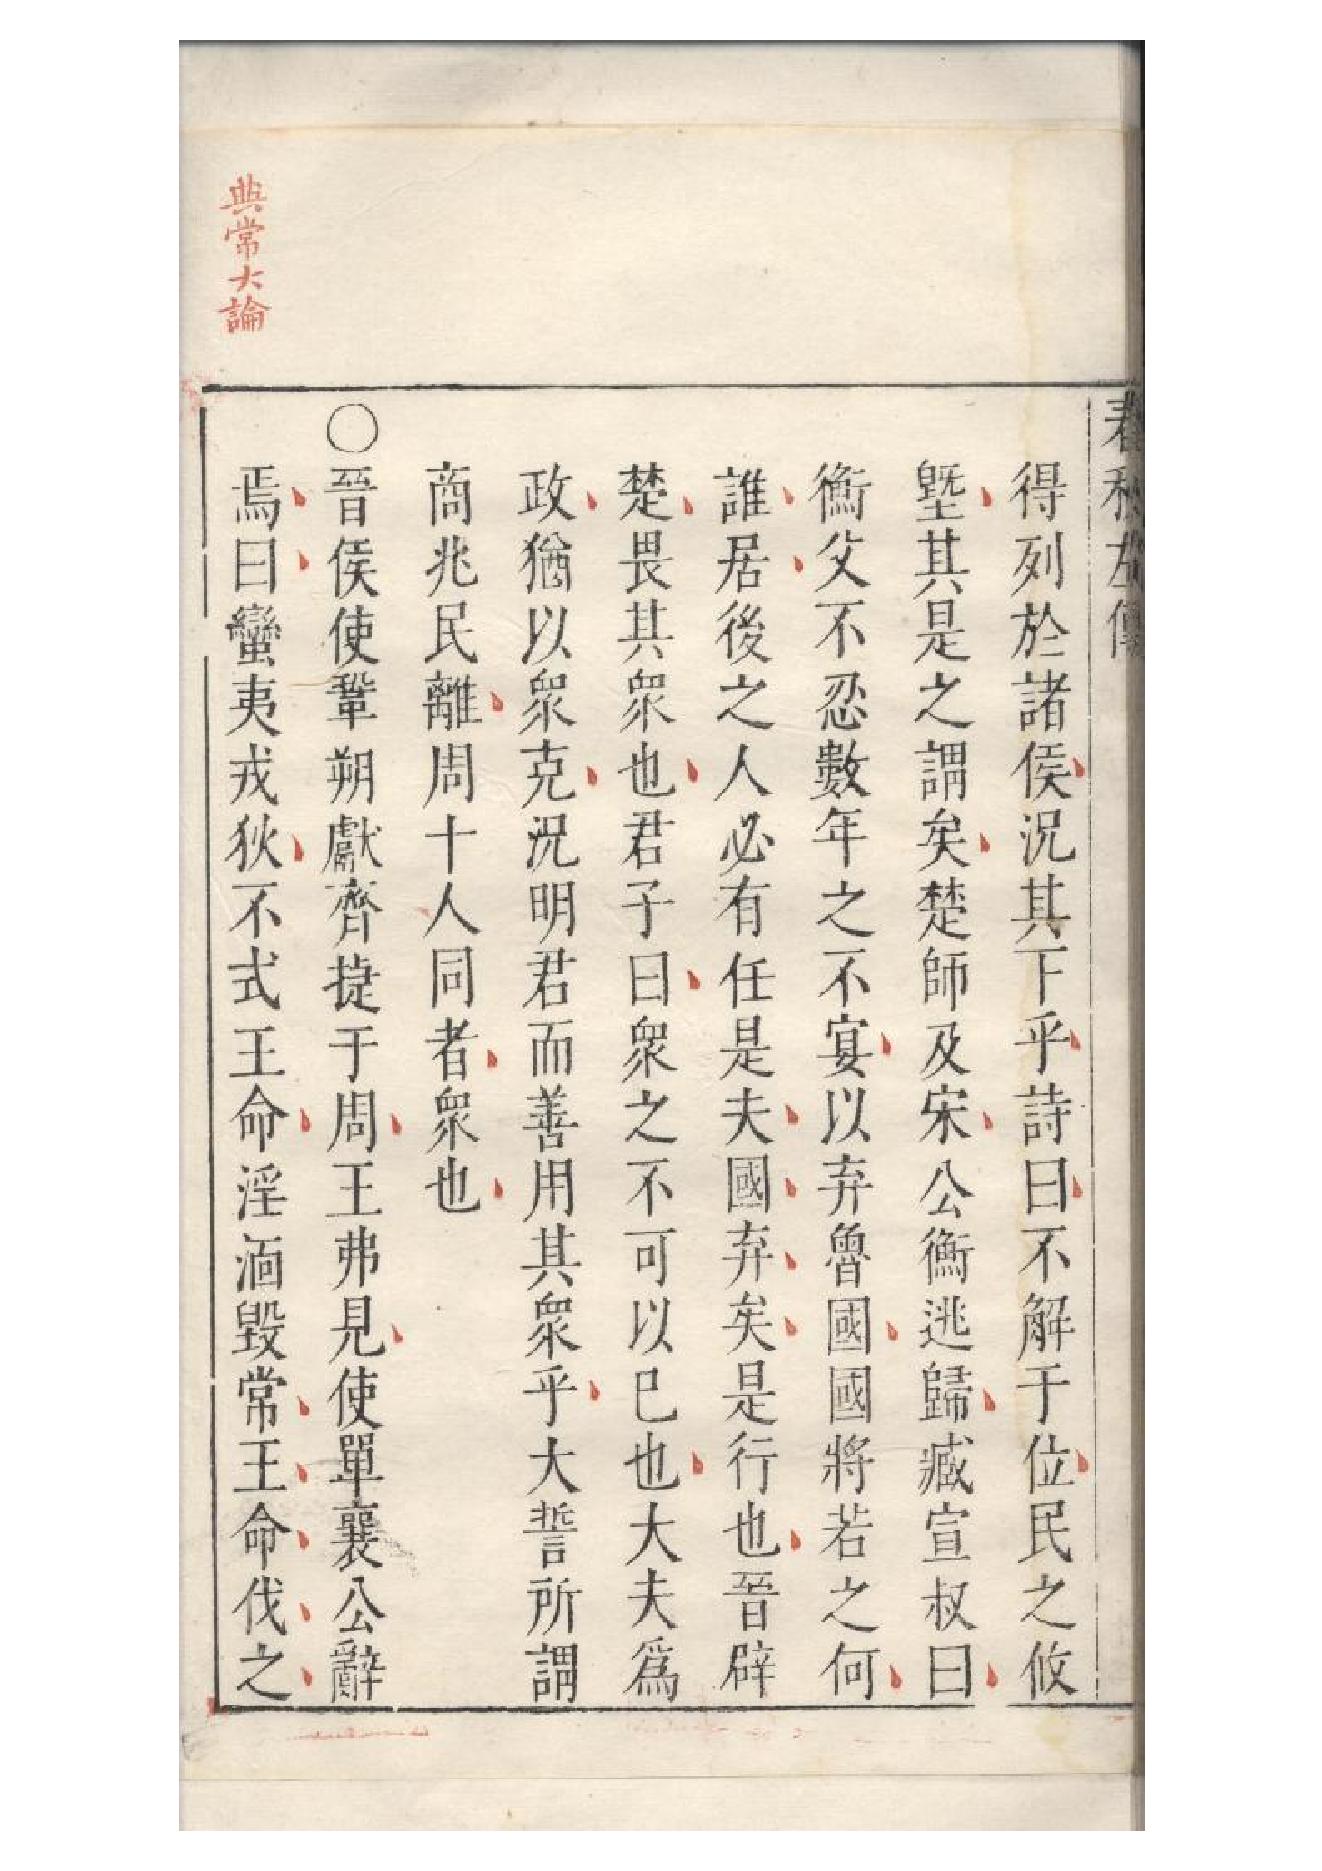 春秋左傳
得列於諸侯況其下乎詩曰不解于位民之攸
塈其是之謂矣楚師及宋公衡逃歸臧宣叔曰
衡父不忍數年之不宴以弃魯國國將若之何
誰居後之人必有任是夫國弃矣是行也晉辟
楚畏其衆也君子曰衆之不可以已也大夫爲
政猶以衆克況明君而善用其衆乎大誓所謂
商兆民離周十人同者衆也
〇晉侯使鞏朔獻齊捷于周王弗見使單襄公辭
焉曰蠻夷戎狄不式王命淫湎毀常王命伐之
典常大論